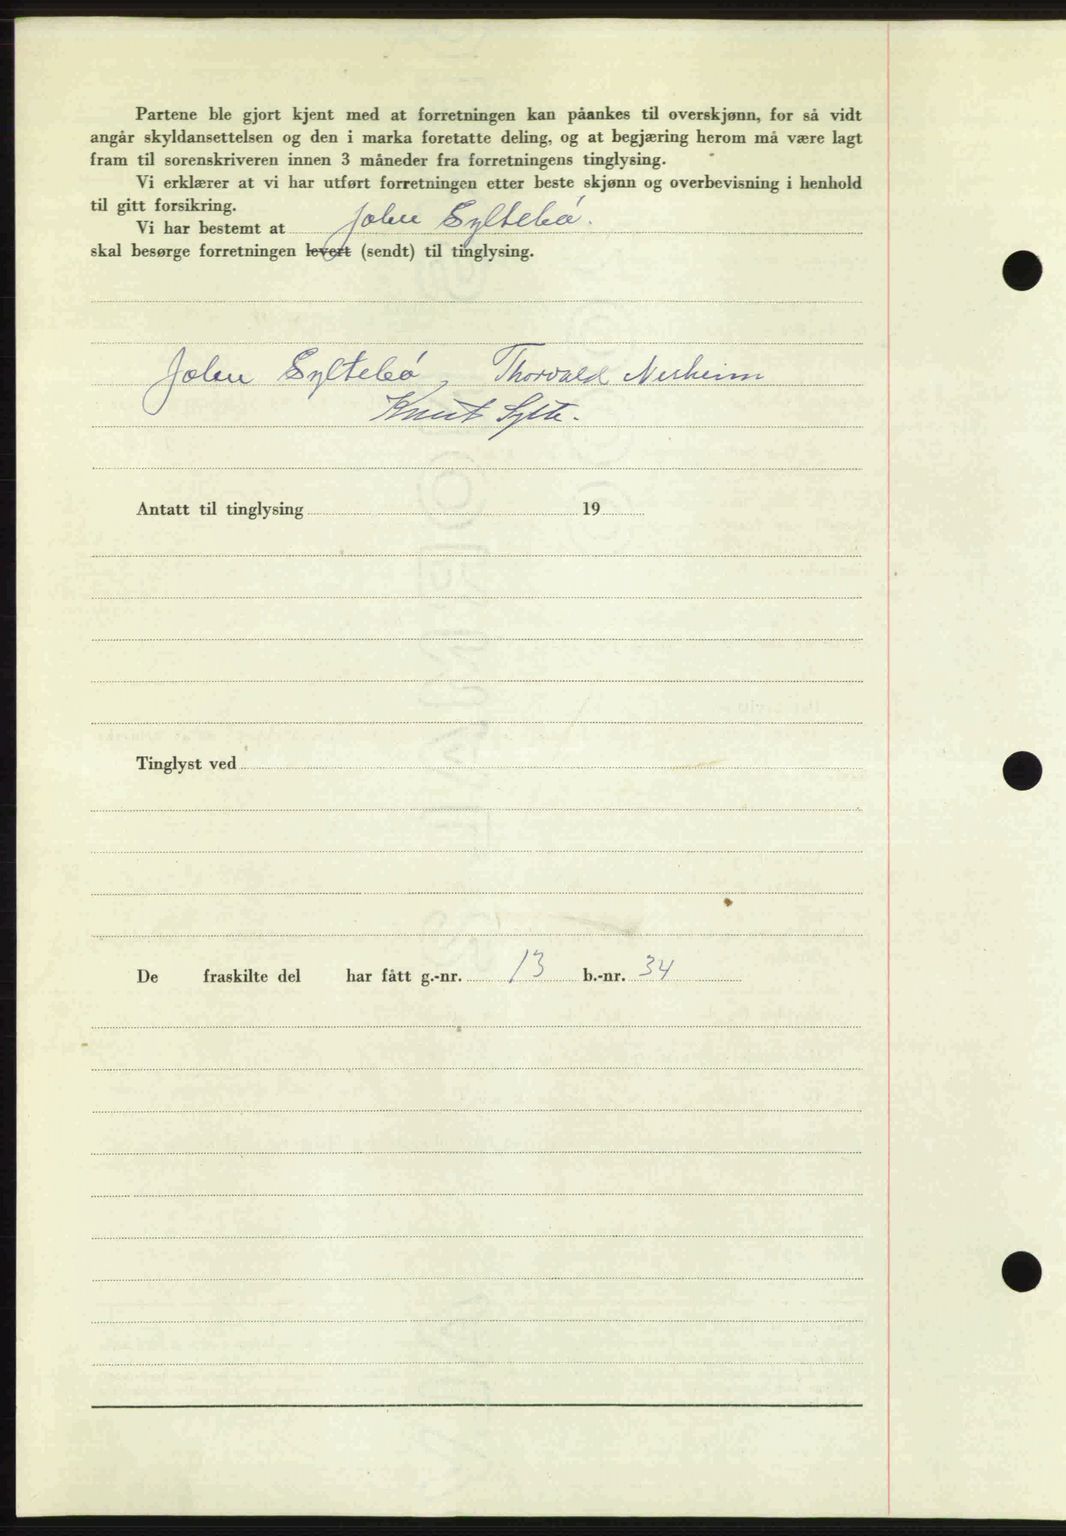 Partene ble gjort kjent med at forretningen kan påankes til overskjønn, for så vidt
angår skyldansettelsen og den i marka foretatte deling, og at begjæring herom må være lagt
fram til sorenskriveren innen 3 måneder fra forretningens tinglysing.
Vi erklærer at vi har utført forretningen etter beste skjønn og overbevisning i henhold
til gitt forsikring.
Vi har bestemt at John Syltebø.
skal besørge forretningen levert (sendt) til tinglysing.
John Syltebø, Thorvald Nerheim
Knut Sylte.
Antatt til tinglysing 19
Tinglyst ved
De fraskilte del har fått g.-nr. 13 b.-nr. 34